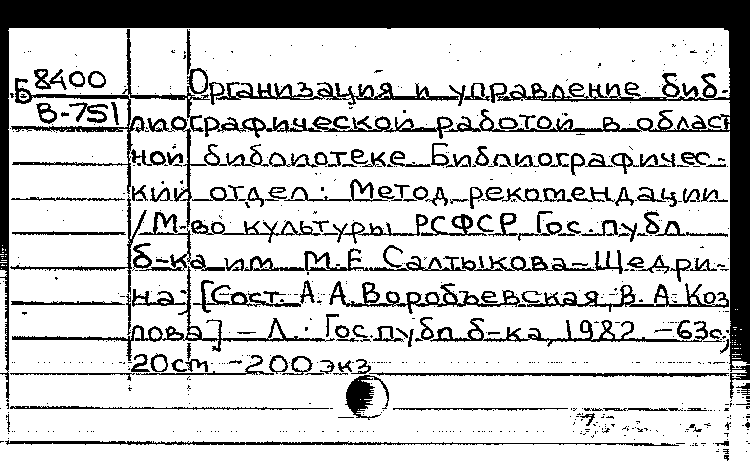 Б 8400
В-751
Организация и управление биб-
лиографической работой в област
ной библиотеке. Библиографичес-
кий отдел: Метод. рекомендации
/М-во культуры РСФСР, Гос. публ.
б-ка им. М.Е. Салтыкова-Щедри-
на; [Сост. А.А. Воробъевская, В.А. Коз
лова] – Л.: Гос. публ. б-ка, 1982. – 63с;
20 см. – 200 экз.